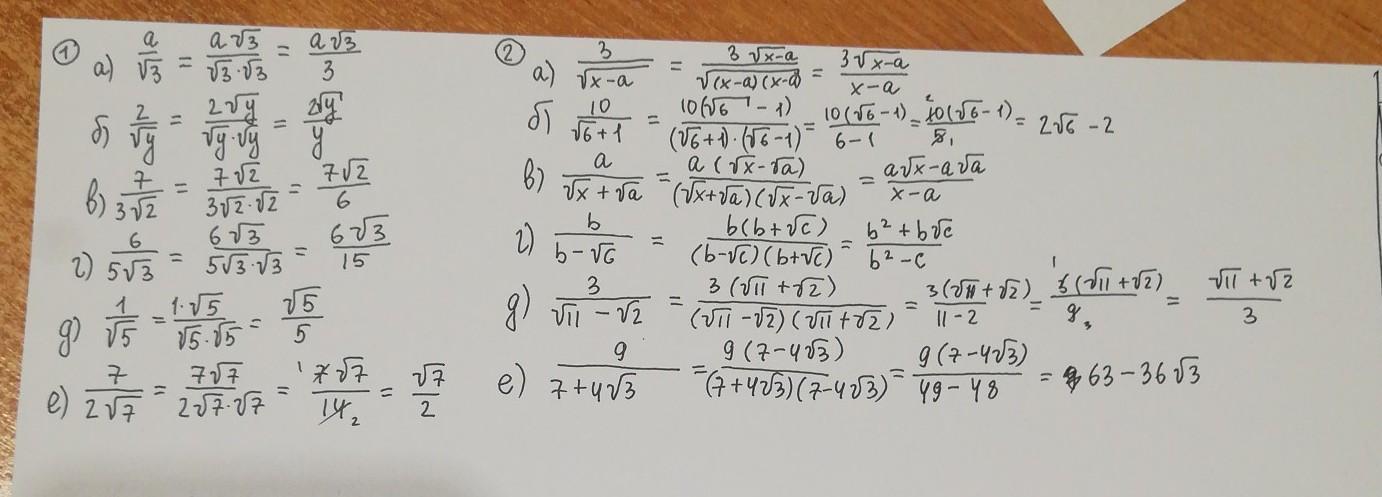 ① а) a/√3 = a√3/√3·√3 = a√3/3
б) 2/√y = 2√y/√y·√y = 2√y/y
в) 7/3√2 = 7√2/3√2·√2 = 7√2/6
г) 6/5√3 = 6√3/5√3·√3 = 6√3/15
д) 1/√5 = 1·√5/√5·√5 = √5/5
е) 7/2√7 = 7√7/2√7·√7 = ¹7√7/14₂ = √7/2
② а) 3/√x-a = 3√x-a/√(x-a)(x-a) = 3√x-a/x-a
б) 10/√6+1 = 10(√6-1)/(√6+1)·(√6-1) = 10(√6-1)/6-1 = ²10(√6-1)/5₁ = 2√6-2
в) a/√x+√a = a(√x-√a)/(√x+√a)(√x-√a) = a√x-a√a/x-a
г) b/b-√c = b(b+√c)/(b-√c)(b+√c) = b²+b√c/b²-c
д) 3/√11-√2 = 3(√11+√2)/(√11-√2)(√11+√2) = 3(√11+√2)/11-2 = ¹3(√11+√2)/9₃ = √11+√2/3
е) 9/7+4√3 = 9(7-4√3)/(7+4√3)(7-4√3) = 9(7-4√3)/49-48 = 63-36√3